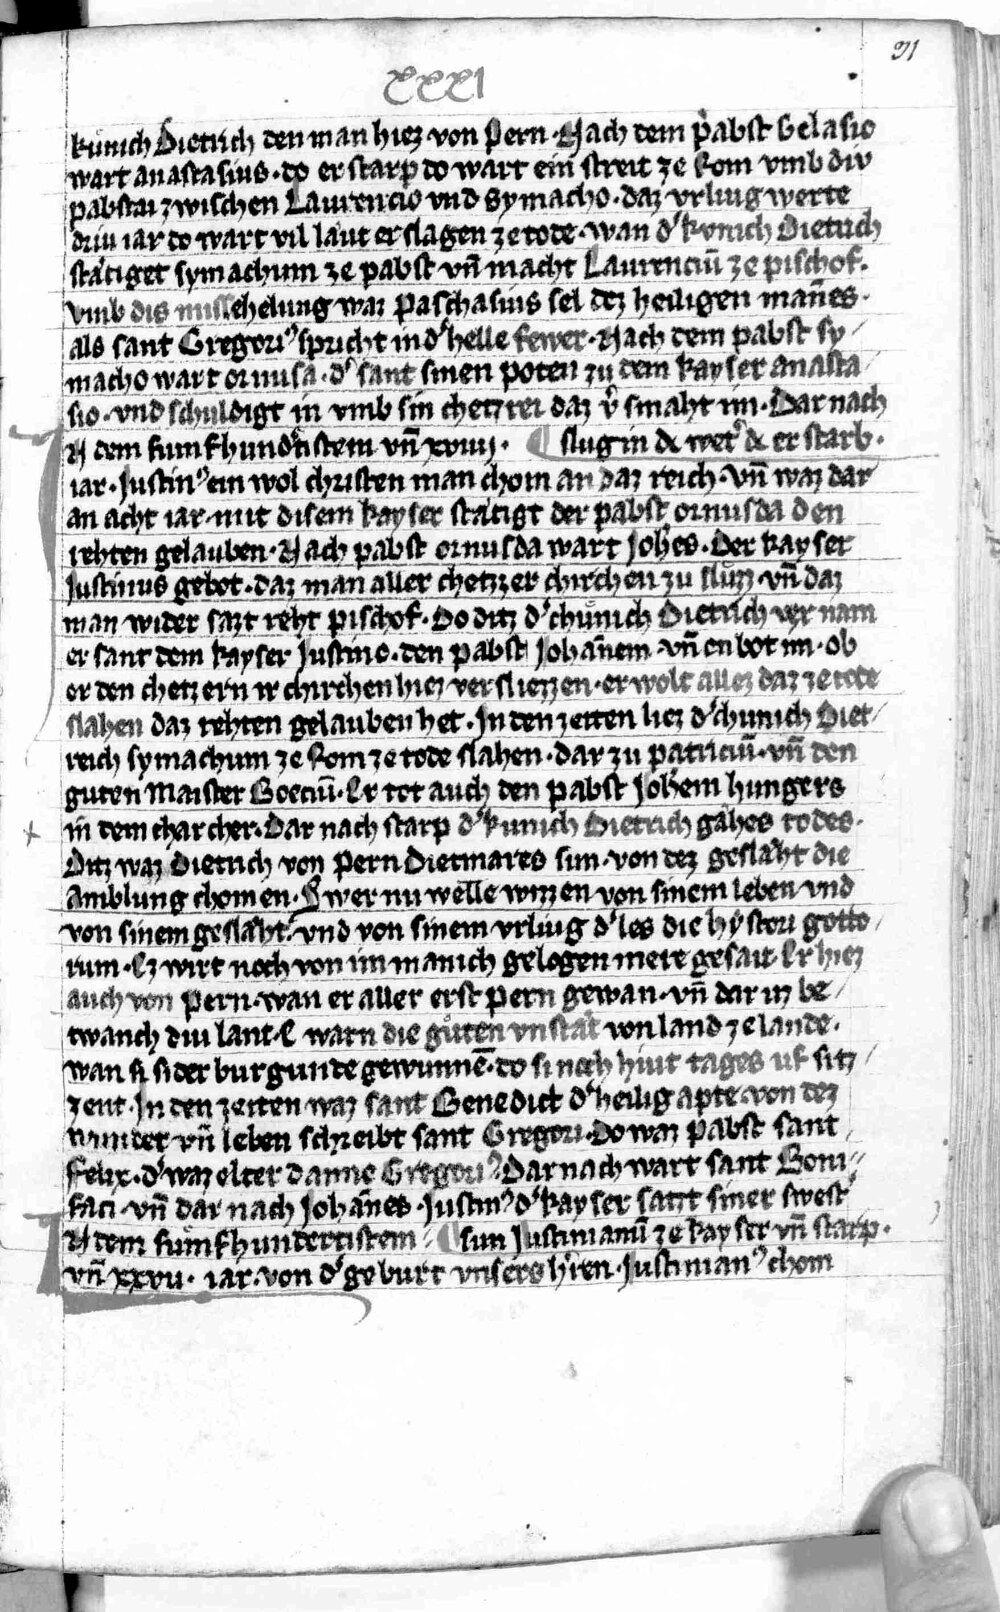 31
XXXI
kúnich Dietrich den man hiez von Pern · Nach dem pabst Gelasio
wart anastasius · do er starp do wart ein streit ze Rom vmb div
pabstai zwischen Laurencio vnd Symacho · daz vrliug werte
driu iar do wart vil läut erslagen ze tode · wan dʼ kvnich Dietrich
stätiget symachum ze pabst vn̄ macht Laurenciū ze pischof ·
vmb dis missehelung waz Paschasius sel dez heiligen man̄es ·
als sant Gregoriꝰ spricht in dʼ helle fewer · Nach dem pabst sy/
macho wart ormisa · dʼ sant sinen poten zu dem kayser anasta/
sio · vnd schuldigt in vmb sin chetzrei daz vʼsmaht im · Dar nach
N dem funfhundʼtistem vn̄ xviiij · slug in dc wetʼ dc er starb ·
iar · Justinꝰ ein wol christen man chom an daz reich · vn̄ waz dar
an acht iar · mit disem kayser stätigt der pabst ormisda den
rehten gelauben · Nach pabst ormisda wart Joh̄es · Der kayser
Justinus gebot · daz man aller chetzzer chirchen zu sluzz · vn̄ daz
man wider sazt reht pischof · Do ditz dʼ chunich Dietrich ver nam
er sant dem kayser Justino · den pabst Johān̄em · vn̄ enbot im · ob
er den chetzern ir chirchen hiez versliezzen · er wolt allez daz ze tode
slahen daz rehten gelauben het · In den zeiten liez dʼ chunich Diet/
reich symachum ze Rom ze tode slahen · dar zu patriciū · vn̄ den
guten Maister Boeciū · Er tot auch den pabst Joh̄em hungers
in dem charcher · Dar nach starp dʼ kunich Dietrich gähes todes ·
Ditz waz Dietrich von Pern Dietmares sun · von dez gesläht die
Amblung chomen · Swer nu welle wizzen von sinem leben vnd
von sinem geslähtʼ vnd von sinem vrliug dʼ les die hystori gotto/
rum · Ez wirt noch von im manich gelogen mere gesait · Er hiez
auch von Pern · wan er aller erst Pern gewan · vn̄ dar iz be/
twanch diu lant · E warn die guten vnstät von land ze lande ·
wan si sider burgunde gewunnē · do si noch hiut tages uf sitz/
zent · In den zeiten waz sant Benedict dʼ heilig apte · von dez
wunder vn̄ leben schreibt sant Gregori · Do waz pabst sant
Felix · dʼ waz elter danne Gregoriꝰ Dar nach wart sant Boni/
faci · vn̄ dar nach Johān̄es · Justinꝰ dʼ kayser satzt siner swestʼ
N dem fumfhundertistem · sun Justinianū ze kayser vn̄ starp ·
vn̄ xxvii · iar · von dʼ geburt vnsers hʼren · Justinianꝰ chom